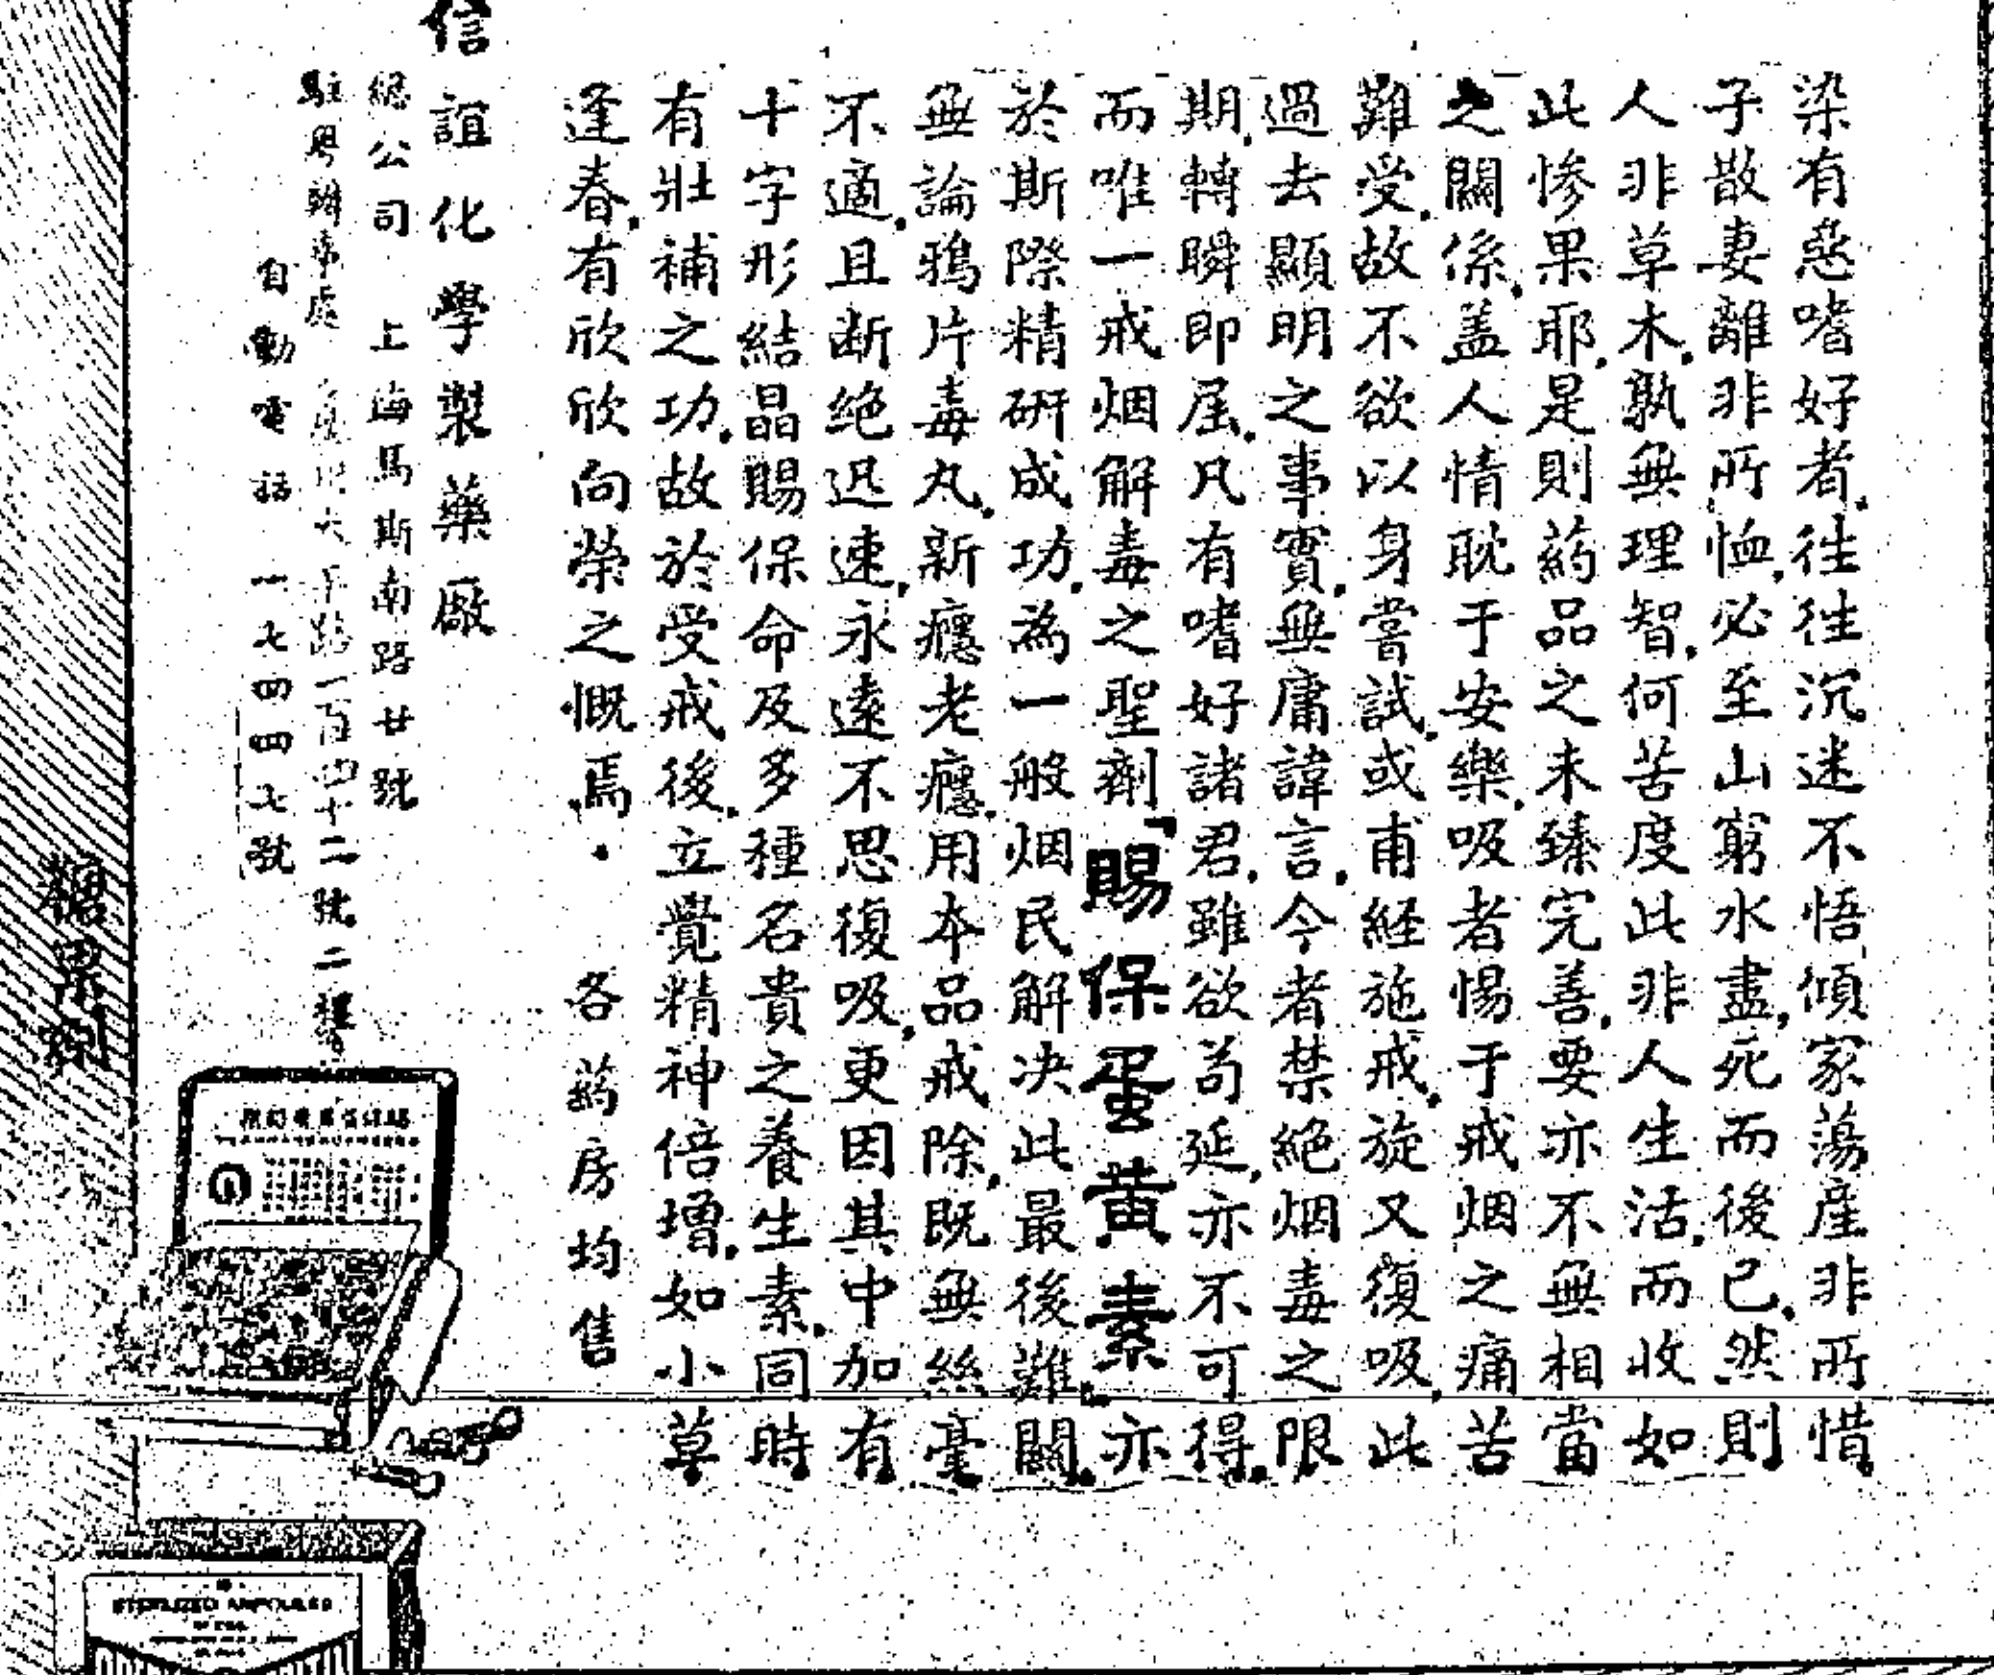 染有惡嗜好者.往往沉迷不悟傾家蕩產非所惜
子散妻離非所恤.必至山窮水盡.死而後已.然則
人非草木.孰無理智.何苦度此非人生活.而收如
此慘果耶.是則葯品之未臻完善.要亦不無相當
之關係.盖人情耽于安樂.吸者惕于戒烟之痛苦
難受.故不欲以身嘗試.或甫経施戒.旋又復吸.此
過去顯明之事實.無庸諱言.今者禁絕烟毒之限
期.轉瞬即屆.凡有嗜好諸君.雖欲苟延.亦不可得.
而唯一戒烟解毒之聖劑「賜保蛋黃素」亦
於斯際精研成功.為一般烟民解决此最後難關.
無論鴉片毒丸.新癮老癮.用本品戒除.既無絲毫
不適.且断绝迅速.永遠不思復吸.更因其中加有
十字形結晶賜保命及多種名貴之養生素.同時
有壯補之功.故於受戒後.立覺精神倍增.如小草
逢春.有欣欣向榮之慨焉. 各葯房均售
信誼化學製藥厰
總公司 上海馬斯南路廿號
駐粵辦事處 大平路一百四十二號二樓
自動電話 一七四四七號
STERILIZED AMPOULES